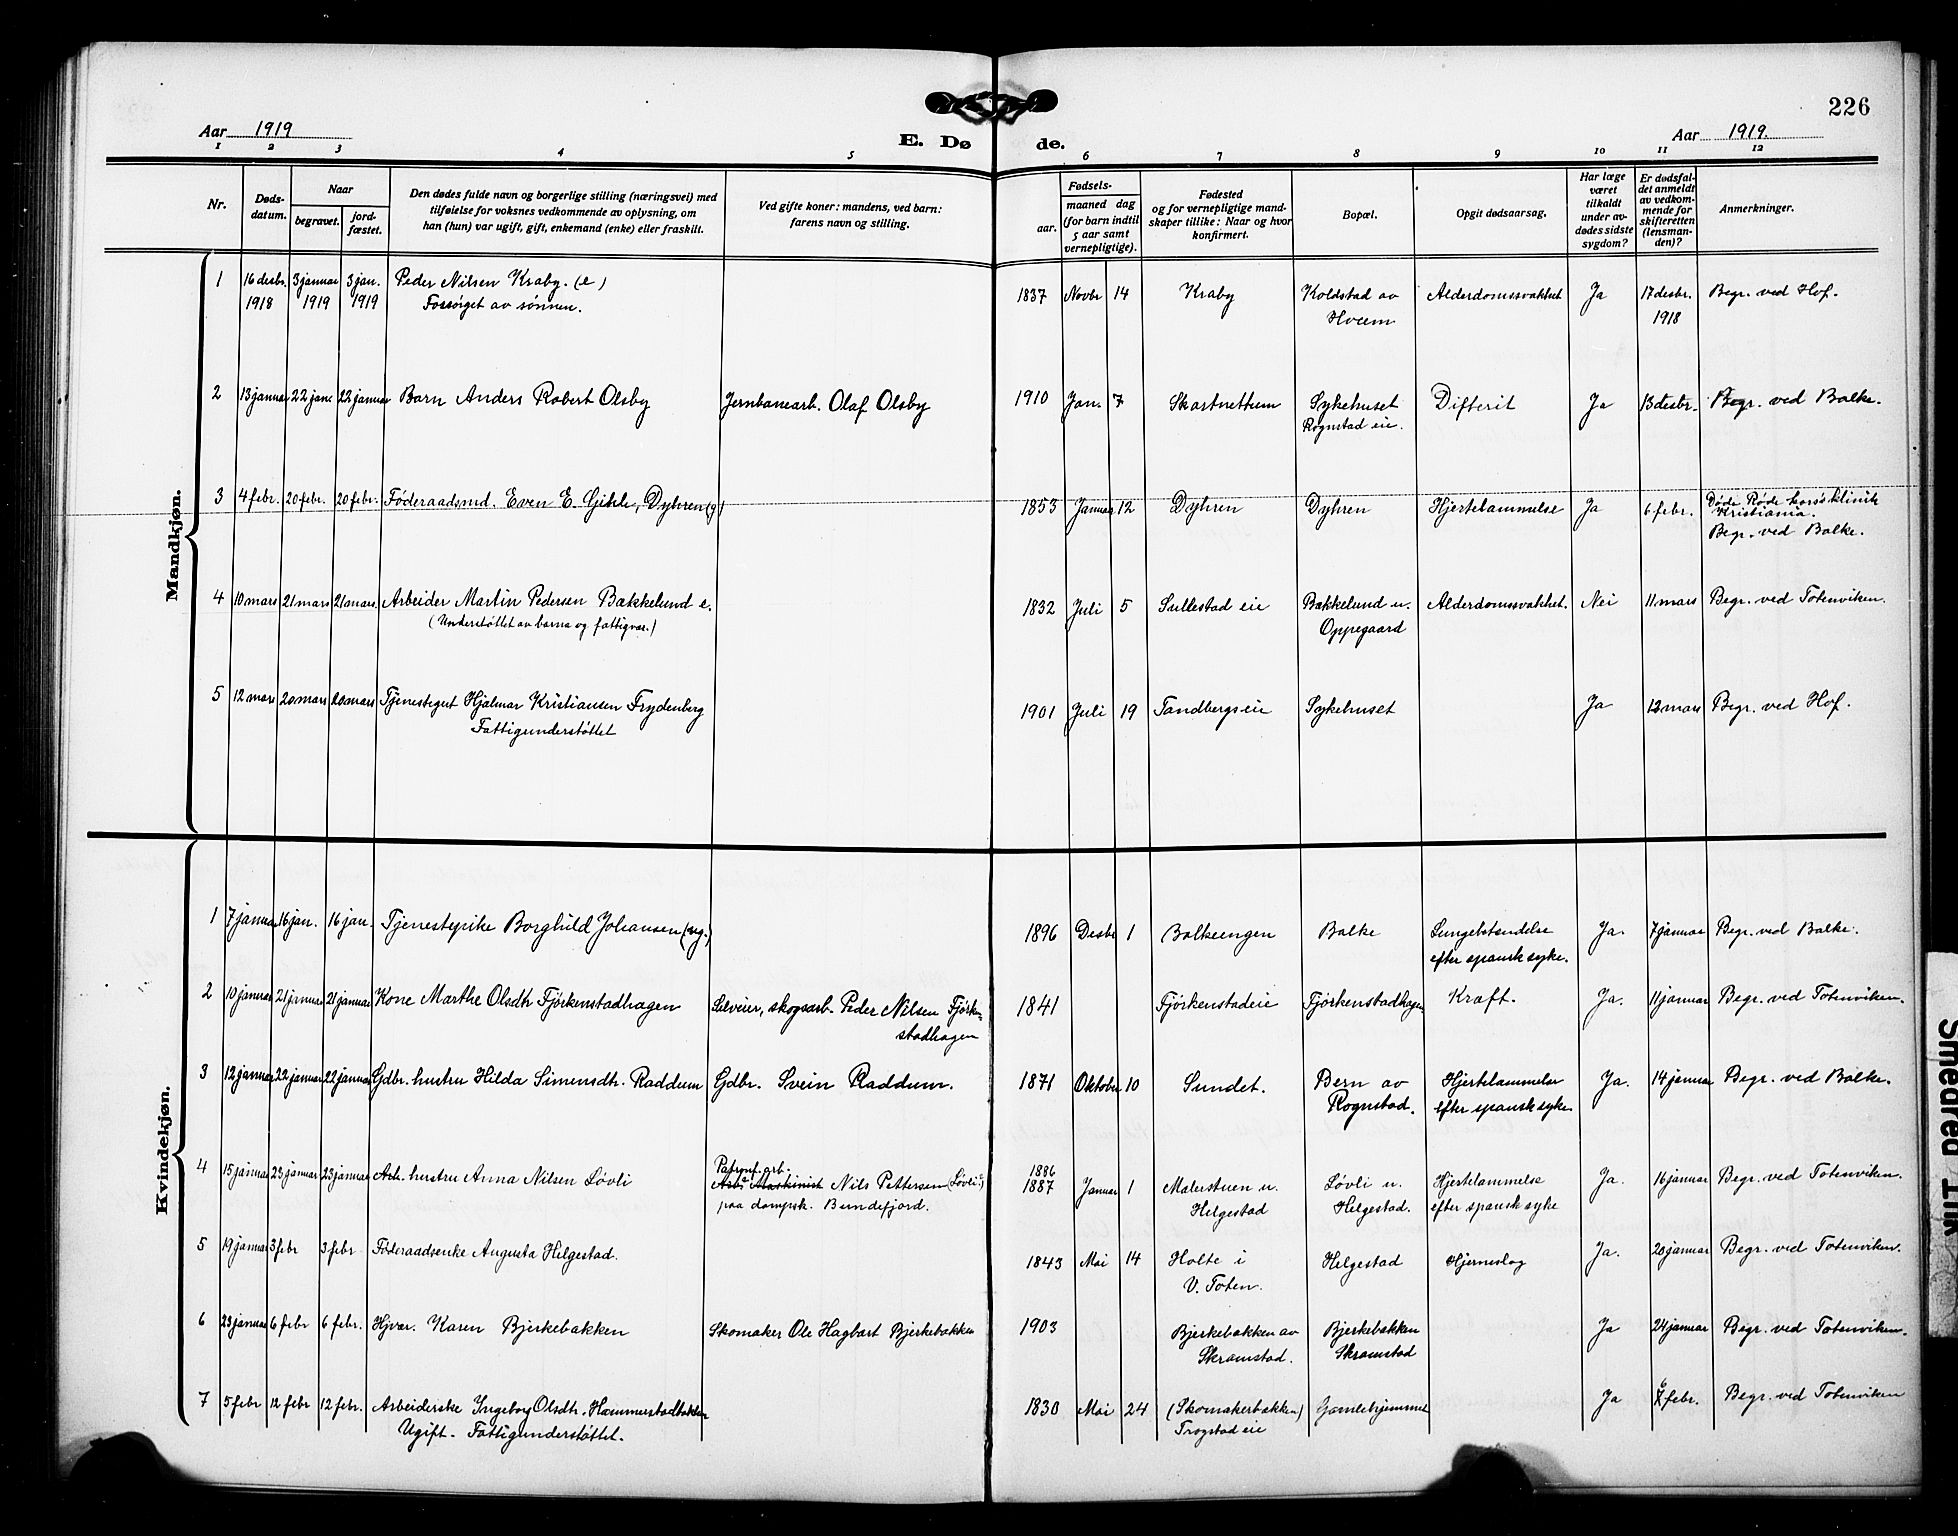 226
Aar 1919
E. Dø de.
Aar 1919.
1 2 3 4 5 6 7 8 9 10 11 12
Nr.
Døds-
datum.
Naar
begravet.
jord-
fæstet.
Den dødes fulde navn og borgerlige stilling (næringsvei) med
tilføielse for voksnes vedkommende av oplysning, om
han (hun) var ugift, gift, enkemand (enke) eller fraskilt.
Ved gifte koner: mandens, ved barn:
farens navn og stilling.
Fødsels-
aar.
maaned dag
(for barn indtil
5 aar samt
vernepligtige).
Fødested
og for vernepligtige mand-
skaper tillike: Naar og hvor
konfirmert.
Bopæl.
Opgit dødsaarsag.
Har læge
været
tilkaldt
under av-
dødes sidste
sygdom?
Er dødsfal-
det anmeldt
av vedkom-
mende for
skifteretten
(lensman-
den)?
Anmerkninger.
Mandkjøn.
1 16 desbr. 3 januar 3 jan. Peder Nilsen Kraby. (e) 1837 Novbr 14 Kraby Koldstad av Alderdomssvakhet Ja 17 desbr. Begr. ved Hof.
1918 1919 1919 Forsørget av sønnen. Hveem 1918
2 13 januar 22 jan. 22 januar Barn Anders Robert Olsby Jernbanearb. Olaf Olsby 1910 Jan. 7 Skartnettum Sykehuset Difterit Ja 13 desbr. Begr. ved Balke.
Rognstad eie.
3 4 febr. 20 febr. 20 febr. Føderaadsmd. Even E. Gihle, Dyhren (g) 1853 Januar 12 Dyhren Dyhren Hjertelammelse Ja 6 febr. Døde Røde kors's klinik
Kristiania.
Begr. ved Balke.
4 10 mars 21 mars 21 mars. Arbeider Martin Pedersen Bækkelund e. 1832 Juli 5 Sullestad eie Bækkelund u. Alderdomssvakhet. Nei 11 mars Begr. ved Totenviken.
(Understøttet av barna og fattigvæs.) Oppegaard
5 12 mars 20 mars 20 mars Tjenestegut Hjalmar Kristiansen Frydenberg 1901 Juli 19 Tandbergseie Sykehuset Ja 12 mars Begr. ved Hof.
Fattigunderstøttet
Kvindekjøn.
1 7 januar 16 jan. 16 jan. Tjenestepike Borghild Johansen (ug.) 1896 Desbr 1 Balkeengen Balke Lungebetændelse Ja. 7 januar Begr. ved Balke.
efter spansk syke.
2 10 januar 21 januar 21 januar Kone Marthe Olsdtr Fjørkenstadhagen Selveier, skogsarb. Peder Nilsen Fjørken- 1841 Fjørkenstadeie Fjørkenstadhagen Kræft. Ja. 11 januar Begr. ved Totenviken.
stadhagen
3 12 januar 22 januar 22 januar Gdbr. hustru Hilda Simensdtr. Raddum Gdbr. Svein Raddum. 1871 Oktober 10 Sundet. Bern av Hjertelammelse Ja. 14 januar Begr. ved Balke.
Rognstad. efter spansk syke
4 15 januar 23 januar 23 januar Arb. hustru Anna Nilsen Løvli Nils Pettersen (Løvli) 1886
1887 Januar 1 Malerstuen u. Løvli u. Hjertelammelse Ja. 16 januar Begr. ved Totenviken.
paa dampsk. Helgestad Helgestad. efter spansk syke
5 19 januar 3 febr 3 febr Føderaadsenke Augusta Helgestad. 1843 Mai 14 Holte i Helgestad Hjerneslag Ja. 20 januar Begr. ved Totenviken.
V. Toten.
6 23 januar 6 febr 6 febr. Hjvær. Karen Bjerkebakken Skomaker Ole Hagbart Bjerkebakken 1903 Bjerkebakken av Bjerkebakken Ja 24 januar Begr. ved Totenviken.
Skramstad. Skramstad
7 5 febr 12 febr 12 febr. Arbeiderske Ingeborg Olsdtr. Hammerstadbakken 1830 Mai 24 (Skomakerbakken) Gamlehjemmet Ja 6 febr. Begr. ved Totenviken
Ugift. Fattigunderstøttet. Trogstad eie
Smeared Ink